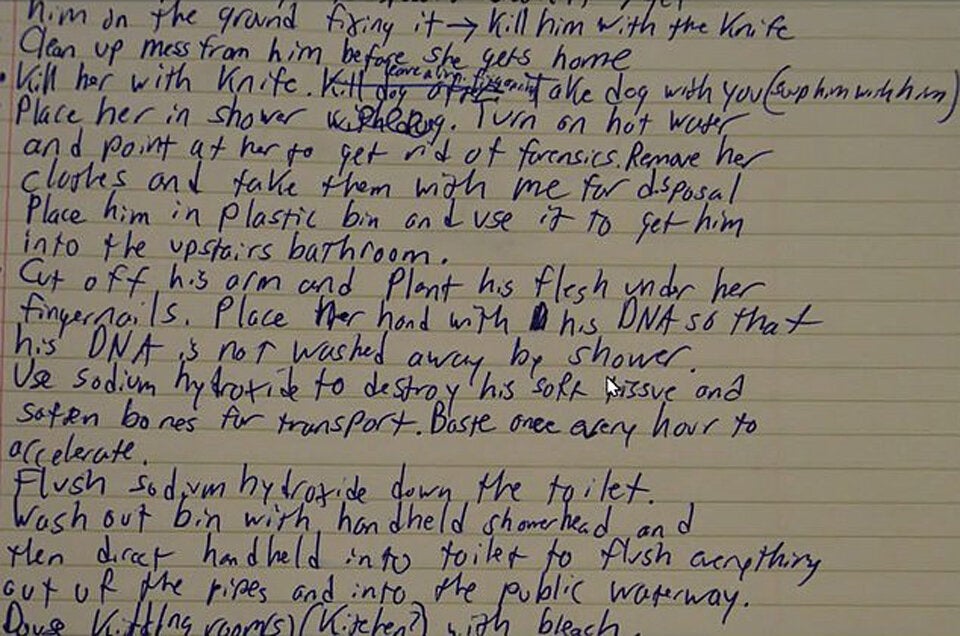 him on the ground fixing it → Kill him with the Knife
Clean up mess from him before she gets home
• Kill her with Knife. Kill dog after Take dog with you (
Place her in shower with dog. Turn on hot water
and point at her to get rid of forensics. Remove her
clothes and take them with me for disposal
Place him in plastic bin and use it to get him
into the upstairs bathroom.
Cut off his arm and plant his flesh under her
fingernails. Place her hand with his DNA so that
his DNA is not washed away by shower.
Use sodium hydroxide to destroy his soft tissue and
soften bones for transport. Baste once every hour to
accelerate.
Flush sodium hydroxide down the toilet.
Wash out bin with handheld showerhead and
then direct handheld into toilet to flush everything
out of the pipes and into the public waterway.
Douse Killing room(s) (Kitchen?) with bleach.